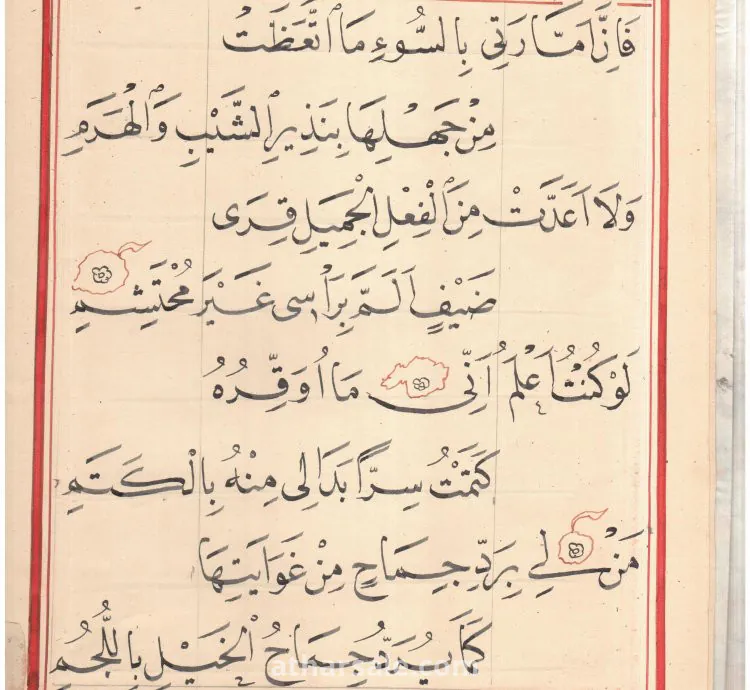 فَاِنَّ اَمَّارَتِى بِالسُّوءِ مَا اتَّعَظَتْ
مِنْ جَهْلِهَا بِنَذِيرِ الشَّيْبِ وَالْهَرَمِ
وَلَا اَعَدَّتْ مِنَ الْفِعْلِ الْجَمِيلِ قِرَى
ضَيْفٍ اَلَمَّ بِرَاْسِى غَيْرَ مُحْتَشِمِ
لَوْ كُنْتُ اَعْلَمُ اَنِّى مَا اُوَقِّرُهُ
كَتَمْتُ سِرًّا بَدَا لِى مِنْهُ بِالْكَتَمِ
مَنْ لِى بِرَدِّ جِمَاحٍ مِنْ غَوَايَتِهَا
كَمَا يُرَدُّ جِمَاحُ الْخَيْلِ بِاللُّجُمِ